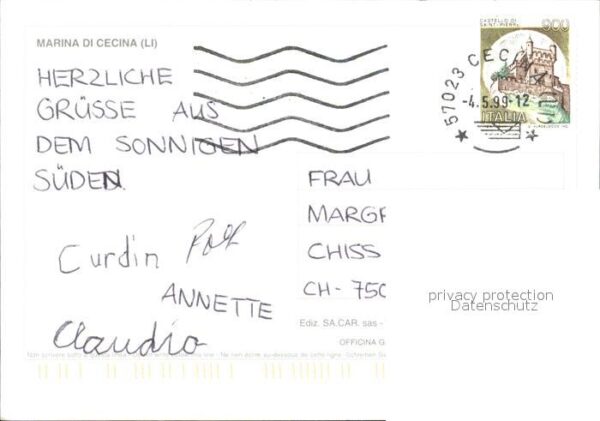 MARINA DI CECINA (LI)
CASTELLO DI
SAINT-PIERRE
900
57023 CECINA
-4.5.99-12
ITALIA
HERZLICHE
GRÜSSE AUS
DEM SONNIGEN
SÜDEN.
FRAU
MARGR
CHISS
CH-750
Curdin Rolf
ANNETTE
Claudio
Ediz. SA.CAR. sas -
OFFICINA G
privacy protection
Datenschutz